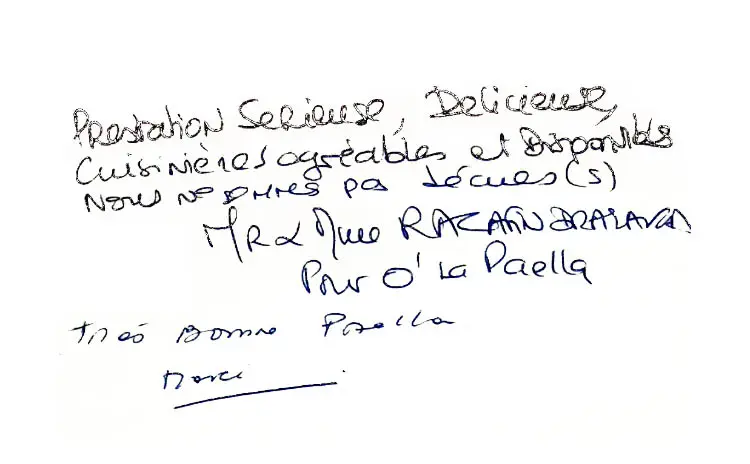 Prestation Serieuse, Delicieuse,
Cuisinières agréables et Disponibles
Nous ne sommes pas déçues(s)
MR & Mme
Pour O' La Paella
Très Bonne Paella
Merci